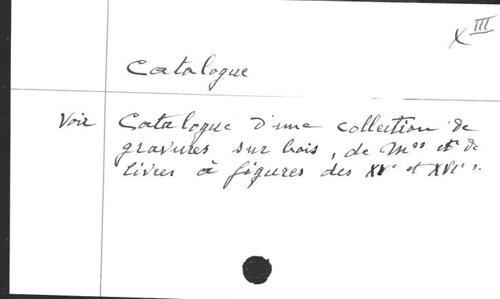 X III
Catalogue
Voir Catalogue d'une collection de
gravures sur bois, de Mss et de
livres à figures des XVe et XVIe s.